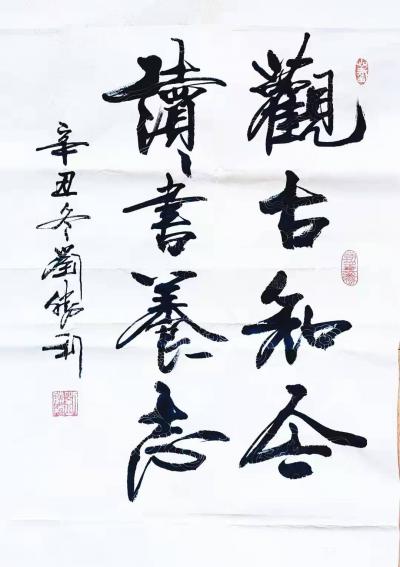 觀古知今
讀書養志
辛丑冬劉勝利